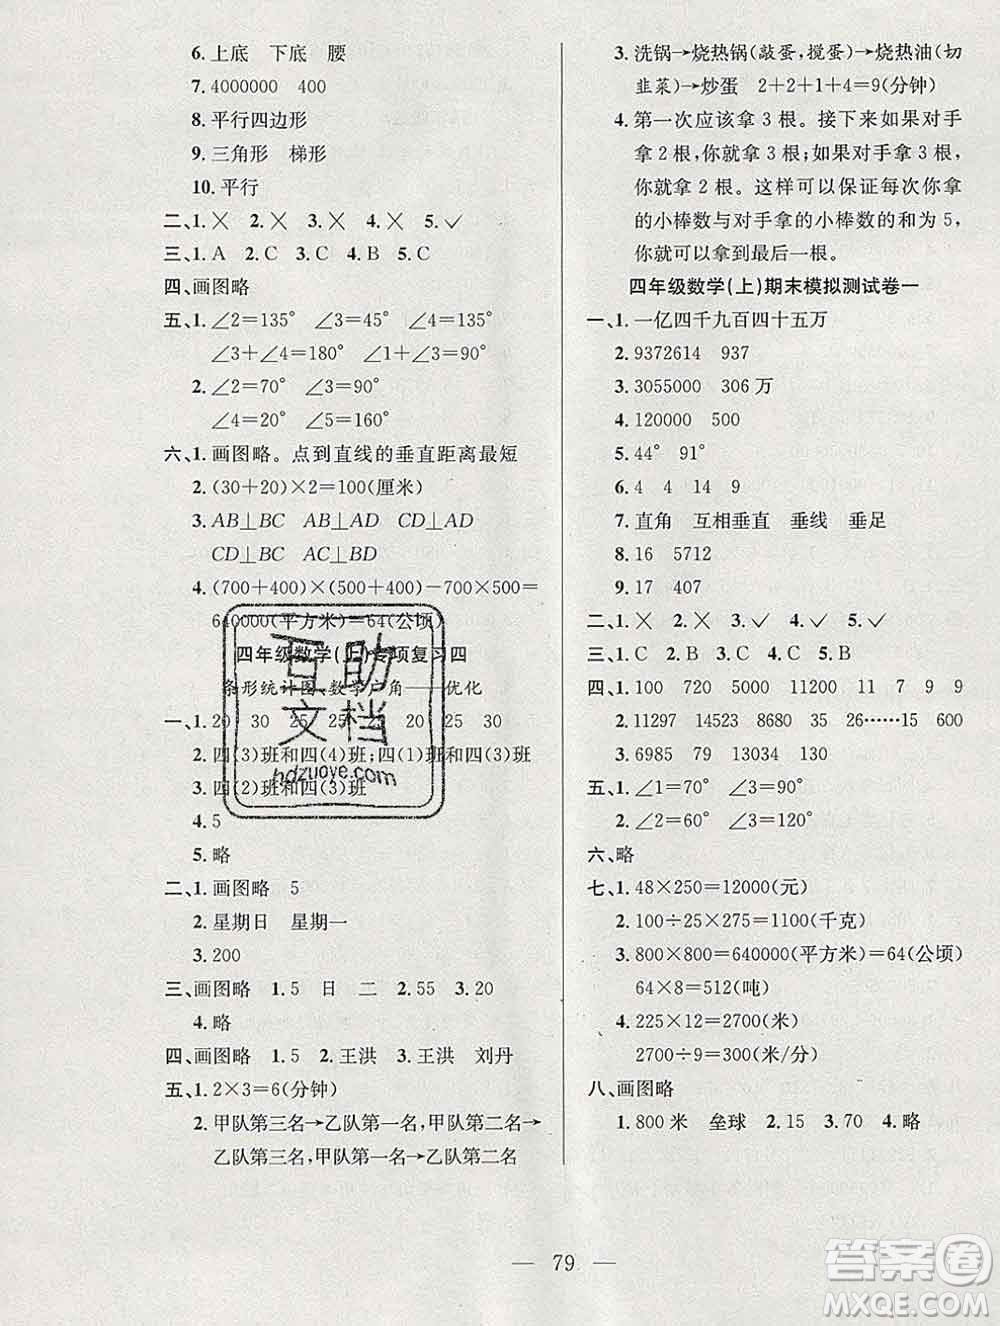 6. 上底　下底　腰
7. 4000000　400
8. 平行四边形
9. 三角形　梯形
10. 平行
二、1. ╳　2. ╳　3. ╳　4. ╳　5. ✓
三、1. A　2. C　3. C　4. B　5. C
四、画图略
五、1. ∠2=135°　∠3=45°　∠4=135°
∠3+∠4=180°　∠1=∠3
2. ∠2=70°　∠3=20°
∠4=20°　∠5=160°
六、1. 画图略。点到直线的垂直距离最短
2. (30+20)×2=100(厘米)
3. AB⊥BC　AB⊥AD　CD⊥AD
CD⊥BC　AC⊥BD
4. (700+400)×(500+400)-700×500=
640000(平方米)=64(公顷)
四年级数学(上)专项复习四
条形统计图、数学广角——优化
一、1. 20　30　25　25　20　25　30
2. 四(3)班和四(4)班;四(1)班和四(2)班
3. 四(2)班和四(3)班
4. 5
5. 略
二、1. 画图略　5
2. 星期日　星期一
3. 200
三、画图略　1. 5　日　二　2. 55　3. 20
4. 略
四、画图略　1. 5　2. 王洪　3. 王洪　刘丹
五、1. 2×3=6(分钟)
2. 甲队第三名→乙队第一名,甲队第二名→
乙队第三名,甲队第一名→乙队第二名
3. 洗锅→烧热锅(敲蛋,搅蛋)→烧热油(切
韭菜)→炒蛋　2+2+1+4=9(分钟)
4. 第一次应该拿3根。接下来如果对手
拿2根,你就拿3根;如果对手拿3根,
你就拿2根。这样可以保证每次你拿
的小棒数与对手拿的小棒数的和为5,
你就可以拿到最后一根。
四年级数学(上)期末模拟测试卷一
一、1. 一亿四千九百四十五万
2. 9372614　937
3. 3055000　306万
4. 120000　500
5. 44°　91°
6. 4　4　14　9
7. 直角　互相垂直　垂线　垂足
8. 16　5712
9. 17　407
二、1. ╳　2. ╳　3. ✓　4. ✓　5. ✓
三、1. C　2. B　3. A　4. A　5. B
四、1. 100　720　5000　14000　11　7　9　9
2. 11297　14523　8680　35　26……15　600
3. 6985　79　13034　130　2
五、1. ∠1=70°　∠3=90°
2. ∠2=60°　∠3=120°
六、略
七、1. 48×250=12000(元)
2. 100÷25×275=1100(千克)
3. 800×800=640000(平方米)=64(公顷)
64×8=512(吨)
4. 225×12=2700(米)
2700÷9=300(米/分)
八、画图略
1. 800米　垒球　2. 15　3. 70　4. 略
— 79 —
互助
文档
hdzuoye.com
答案圈
MXQE.COM